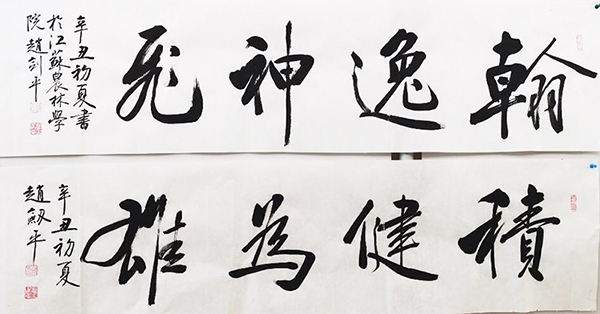 翰逸神飛
辛丑初夏書
於江蘇農林學
院趙剑平
積健為雄
辛丑初夏
趙劔平